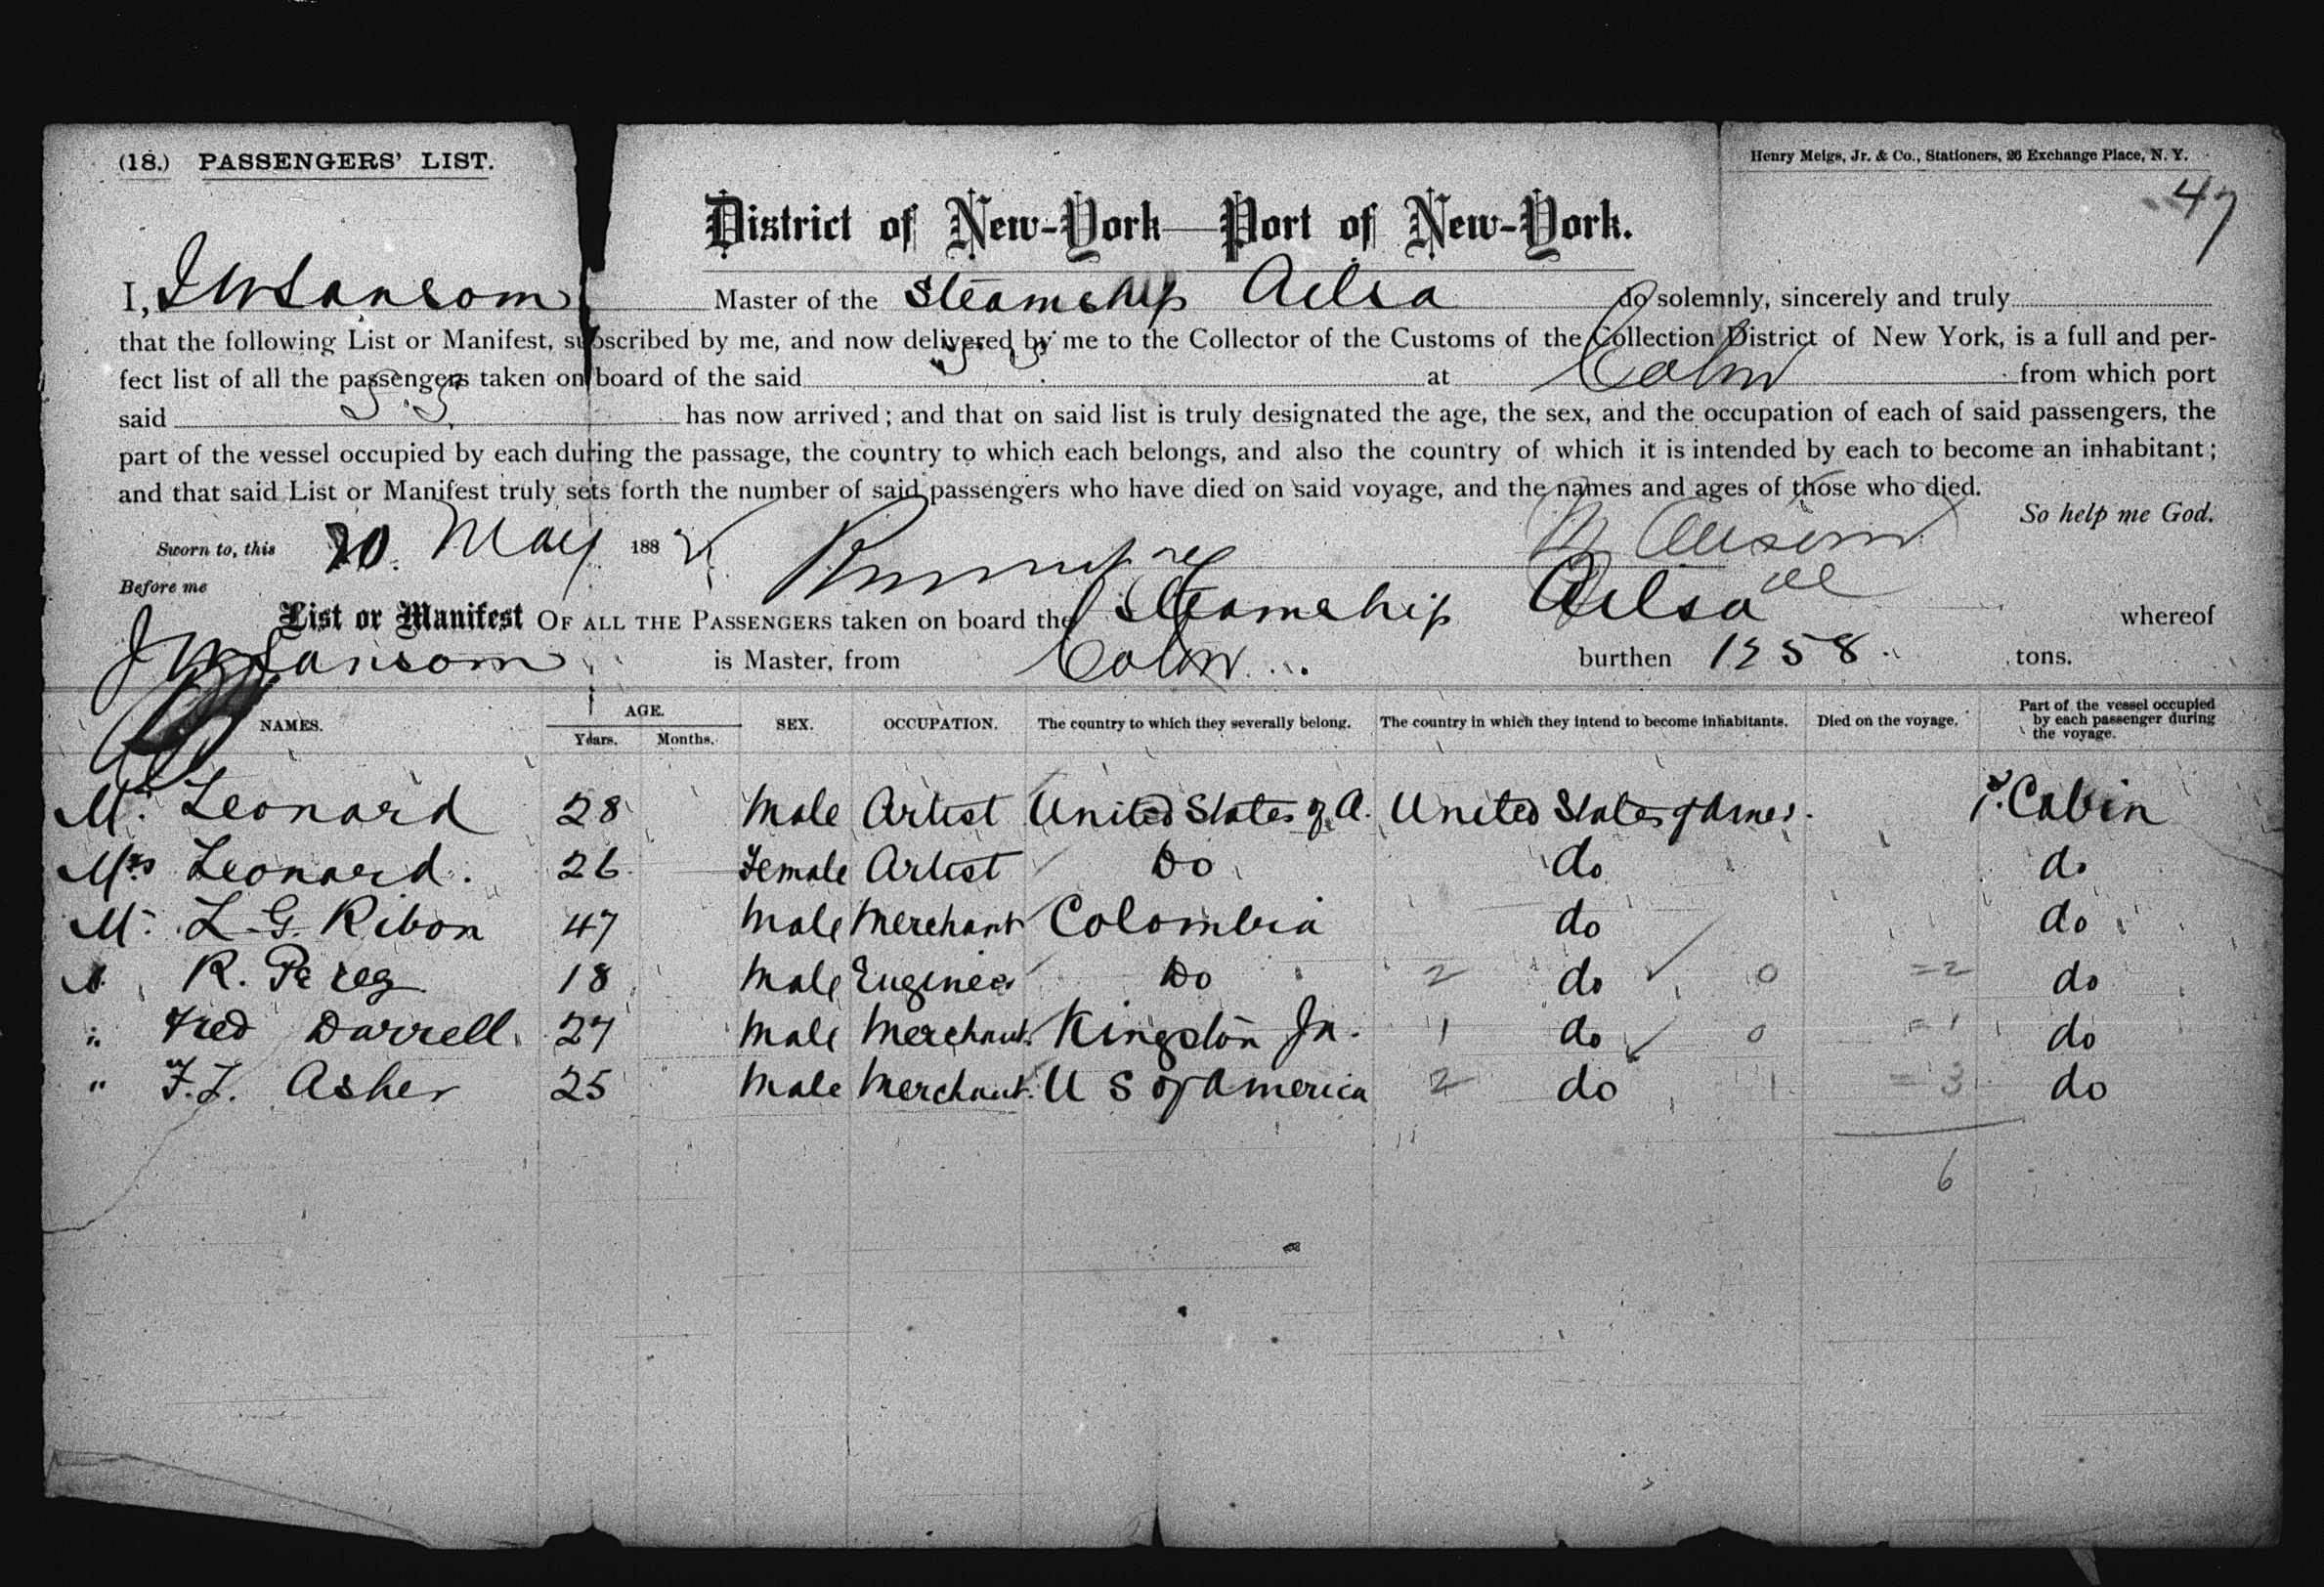 (18.) PASSENGERS' LIST.
Henry Meigs, Jr. & Co., Stationers, 26 Exchange Place, N. Y.
47
District of New-York—Port of New-York.
I, J W Sansom Master of the Steamship Ailsa do solemnly, sincerely and truly
that the following List or Manifest, subscribed by me, and now delivered by me to the Collector of the Customs of the Collection District of New York, is a full and per-
fect list of all the passengers taken on board of the said at Colon from which port
said has now arrived; and that on said list is truly designated the age, the sex, and the occupation of each of said passengers, the
part of the vessel occupied by each during the passage, the country to which each belongs, and also the country of which it is intended by each to become an inhabitant;
and that said List or Manifest truly sets forth the number of said passengers who have died on said voyage, and the names and ages of those who died.
So help me God.
Sworn to, this 20. May 188
Before me
List or Manifest OF ALL THE PASSENGERS taken on board the Steamship Ailsa whereof
J W Sansom is Master, from Colon burthen 1258 tons.
NAMES. AGE. Years. Months. SEX. OCCUPATION. The country to which they severally belong. The country in which they intend to become inhabitants. Died on the voyage. Part of the vessel occupied by each passenger during the voyage.
Mr. Leonard 28 Male Artist United States of A. United States of Amer. Cabin
Mrs Leonard. 26 Female Artist Do do do
Mr. L. G. Ribon 47 Male Merchant Colombia do do
R. Perez 18 Male Engineer Do 2 do 0 =2 do
" Fred Darrell 27 Male Merchant. Kingston Ja. 1 do 0 =1 do
" F. L. Asher 25 Male Merchant. U S of America 2 do 1 =3 do
6